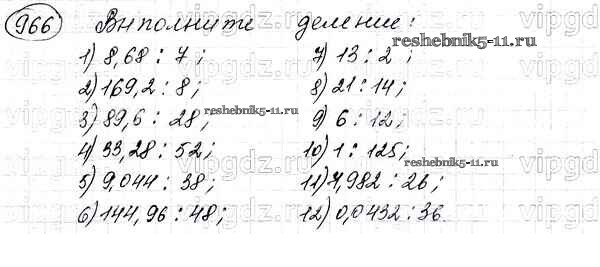 966 Выполните деление:
1) 8,68 : 7;
2) 169,2 : 8;
3) 89,6 : 28;
4) 33,28 : 52;
5) 9,044 : 38;
6) 144,96 : 48;
7) 13 : 2;
8) 21 : 14;
9) 6 : 12;
10) 1 : 125;
11) 7,982 : 26;
12) 0,0432 : 36.
reshebnik5-11.ru
reshebnik5-11.ru
reshebnik5-11.ru
vipgdz.ru